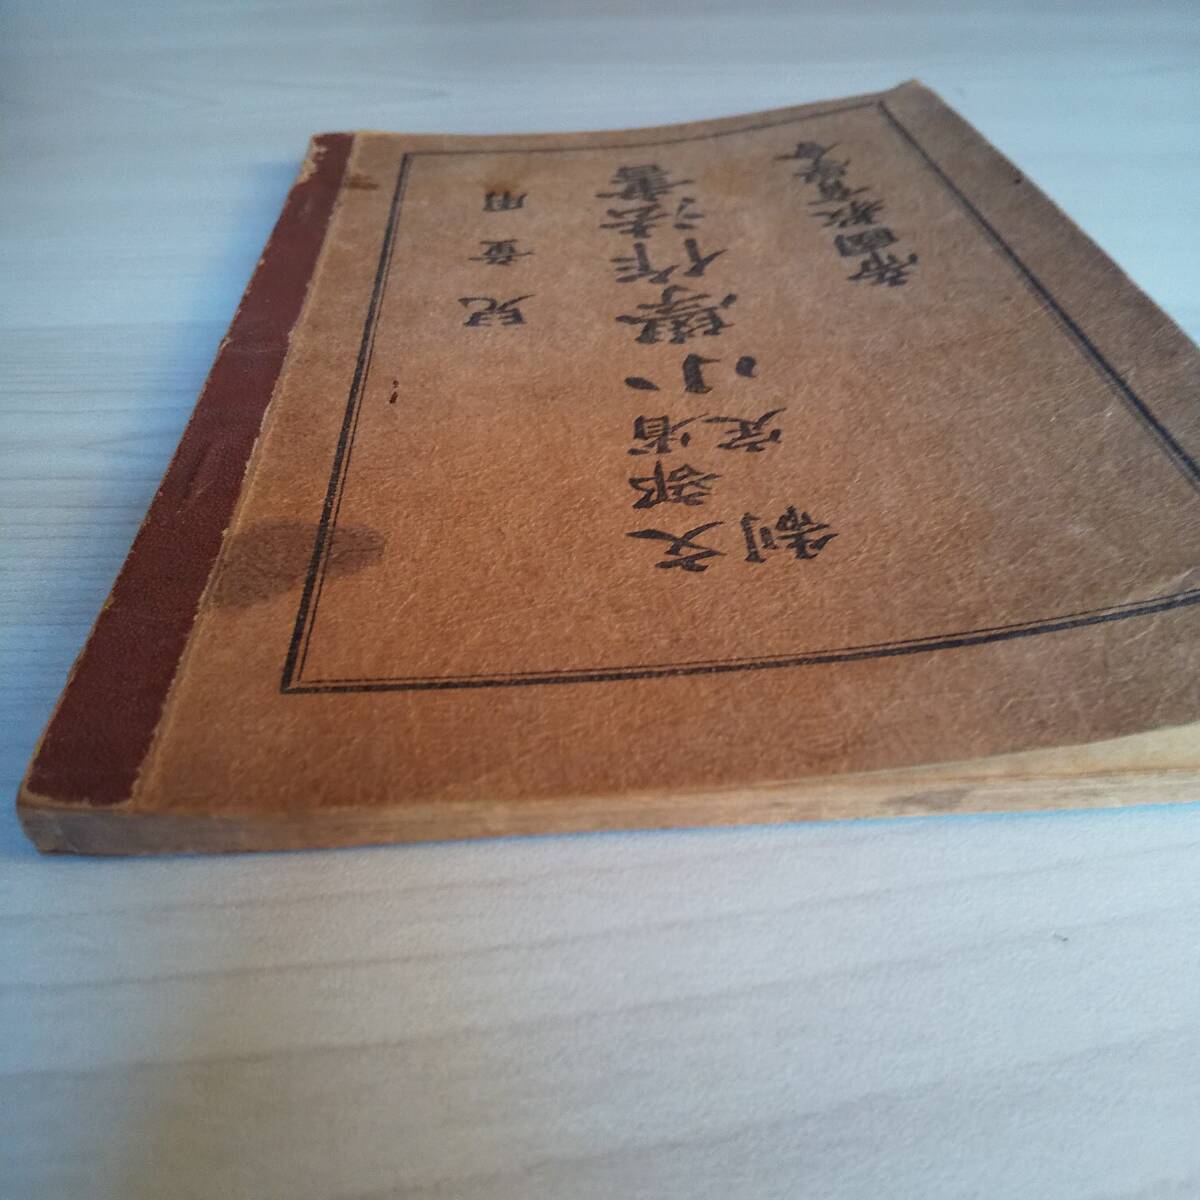 兒童用
文部省
制定
小學作法書
帝國教育學會